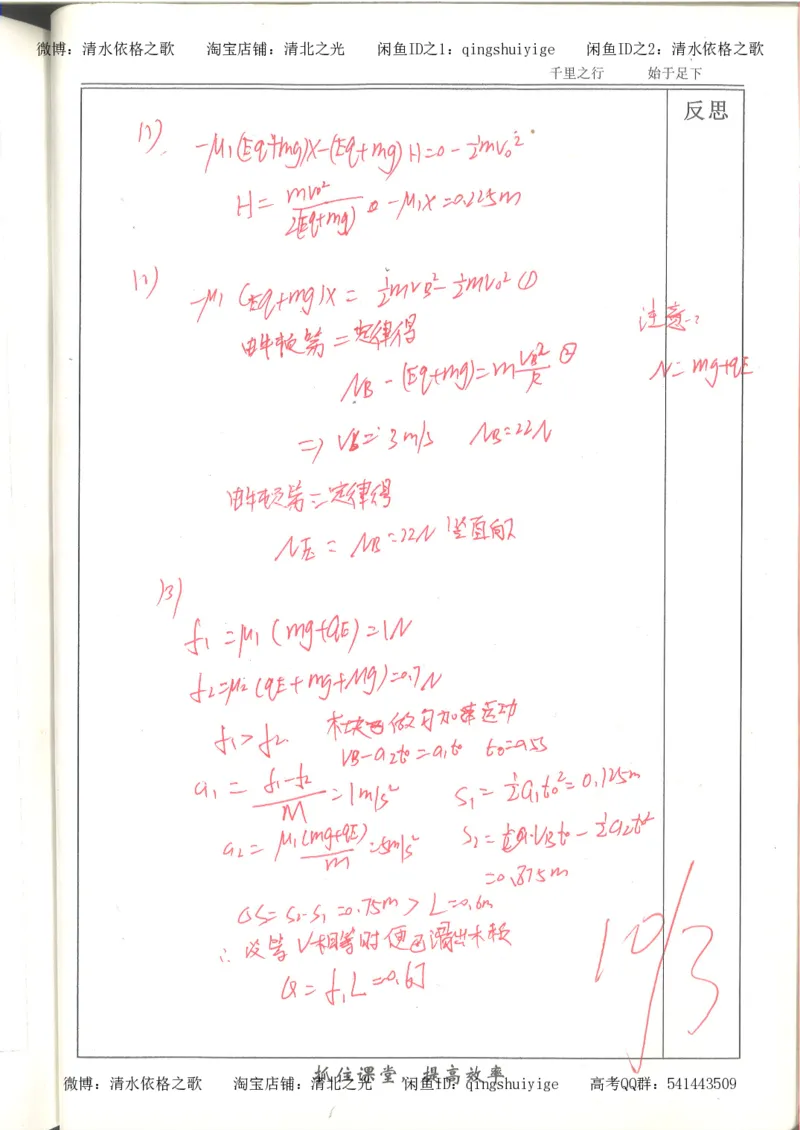 微博：清水依格之歌 淘宝店铺：清北之光 闲鱼ID之1：qingshuiyige 闲鱼ID之2：清水依格之歌
千里之行 始于足下
反思
(1)
-μ₁(Eq+mg)x-(Eq+mg)H=0-½mv₀²
H=mv₀²/2(Eq+mg) -μ₁x=0.225m
(2)
-μ₁(Eq+mg)x=½mvB²-½mv₀² ①
由牛顿第二定律得
NB-(Eq+mg)=m vB²/R ②
=> vB=3m/s NB=22N
注意：
N=mg+qE
由牛顿第三定律得
N压=NB=22N 竖直向下
(3)
f₁=μ₁(mg+qE)=1N
f₂=μ₂(qE+mg+Mg)=0.7N
f₁>f₂ 木块 做匀加速运动
vB-a₂t₀=a₁t₀ t₀=0.5s
a₁=f₁-f₂/M=1m/s² S₁=½a₁t₀²=0.125m
a₂=μ₁(mg+qE)/m=5m/s² S₂=vBt₀-½a₂t₀²
=0.875m
ΔS=S₂-S₁=0.75m>L=0.6m
∴没等V相等时便已滑出木板
Q=f₁L=0.6J
10/3
抓住课堂，提高效率
微博：清水依格之歌 淘宝店铺：清北之光 闲鱼ID之1：qingshuiyige 高考QQ群：541443509